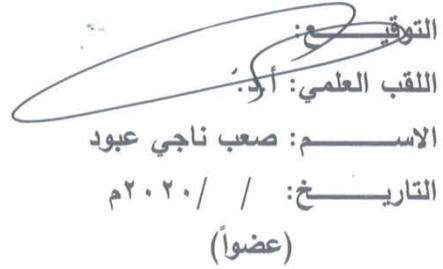 التوقيـــــع:
اللقب العلمي: أ.د.
الاســـــــم: صعب ناجي عبود
التاريـــــخ: / /٢٠٢٠م
(عضواً)